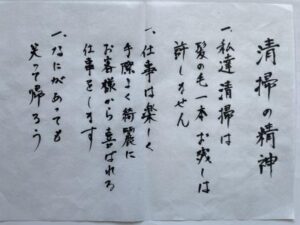 清掃の精神
一、私達清掃は
髪の毛一本お残しは
許しません
一、仕事は楽しく
手際よく綺麗に
お客様から喜ばれる
仕事をします
一、なにがあっても
笑って帰ろう